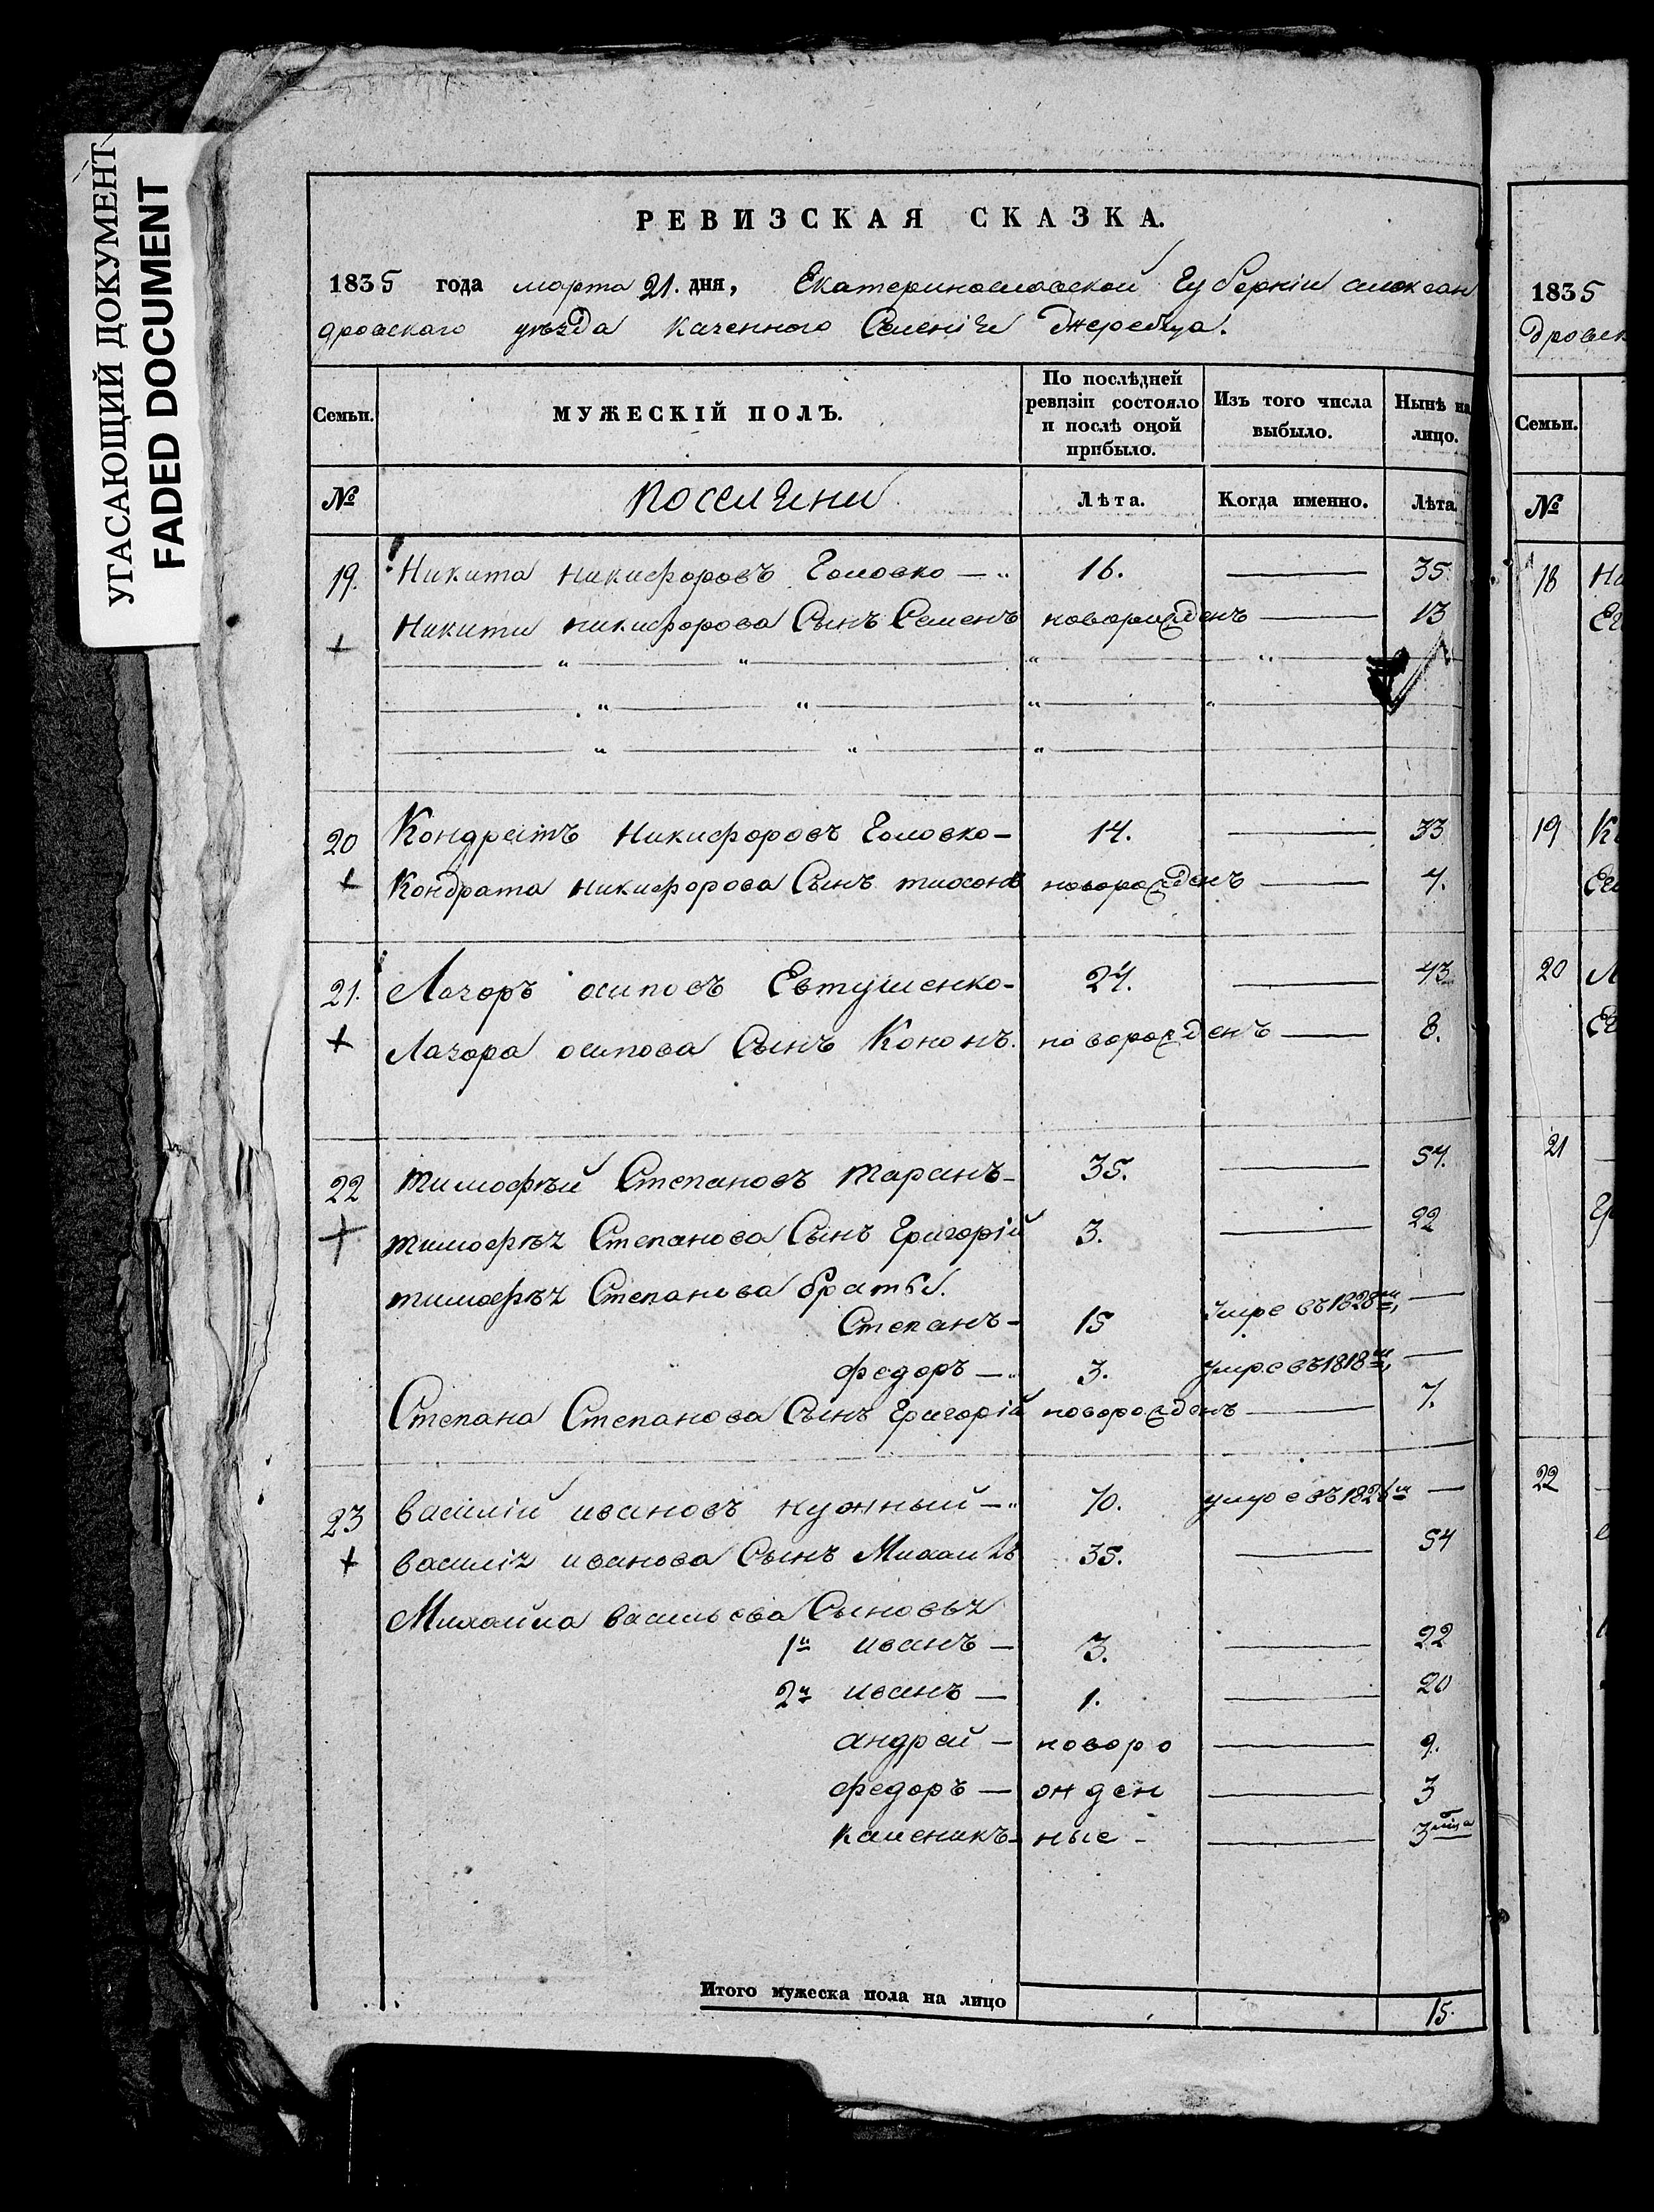 УГАСАЮЩИЙ ДОКУМЕНТ
FADED DOCUMENT
РЕВИЗСКАЯ СКАЗКА.
1835 года марта 21. дня, Екатеринославской Губерніи алексан
дровскаго уѣзда казенного Селенія Жеребца.
Семьи.
МУЖЕСКІЙ ПОЛЪ.
По послѣдней
ревизіи состояло
и послѣ оной
прибыло.
Изъ того числа
выбыло.
Нынѣ на
лицо.
№
поселяни
Лѣта.
Когда именно.
Лѣта.
19. Никита никифоровъ Головко — 16. — 35.
Никити никифорова Сынъ Семенъ новорожденъ — 13
20 Кондратъ Никифоровъ Головко — 14. — 33
Кондрата никифорова Сынъ тихонъ новорожденъ — 7.
21. Лазоръ осиповъ Евтушенко — 24. — 43
Лазора осипова Сынъ Кононъ. новорожденъ — 8.
22 тимофѣй Степановъ таранъ — 35. — 54.
тимофѣя Степанова Сынъ Григорій 3. — 22
тимофѣя Степанова братья.
Степанъ — 15 умре въ 1828м, —
федоръ — 3. умре въ 1818м, —
Степана Степанова Сынъ Григорій новорожденъ — 7.
23 василій ивановъ нужный — 70. умре въ 1826м —
василія иванова Сынъ Михаилъ 35. — 54
Михайла васильева Сыновья
1й иванъ — 3. — 22
2й иванъ — 1. — 20
андрей — новоро — 9.
федоръ — жден — 3
каленикъ — ные — 3 мѣца
Итого мужеска пола на лицо 15.
1835
дровск
Семьи.
№
18 Ни
Ег
19 К
Ег
20 Л
Ег
21
22